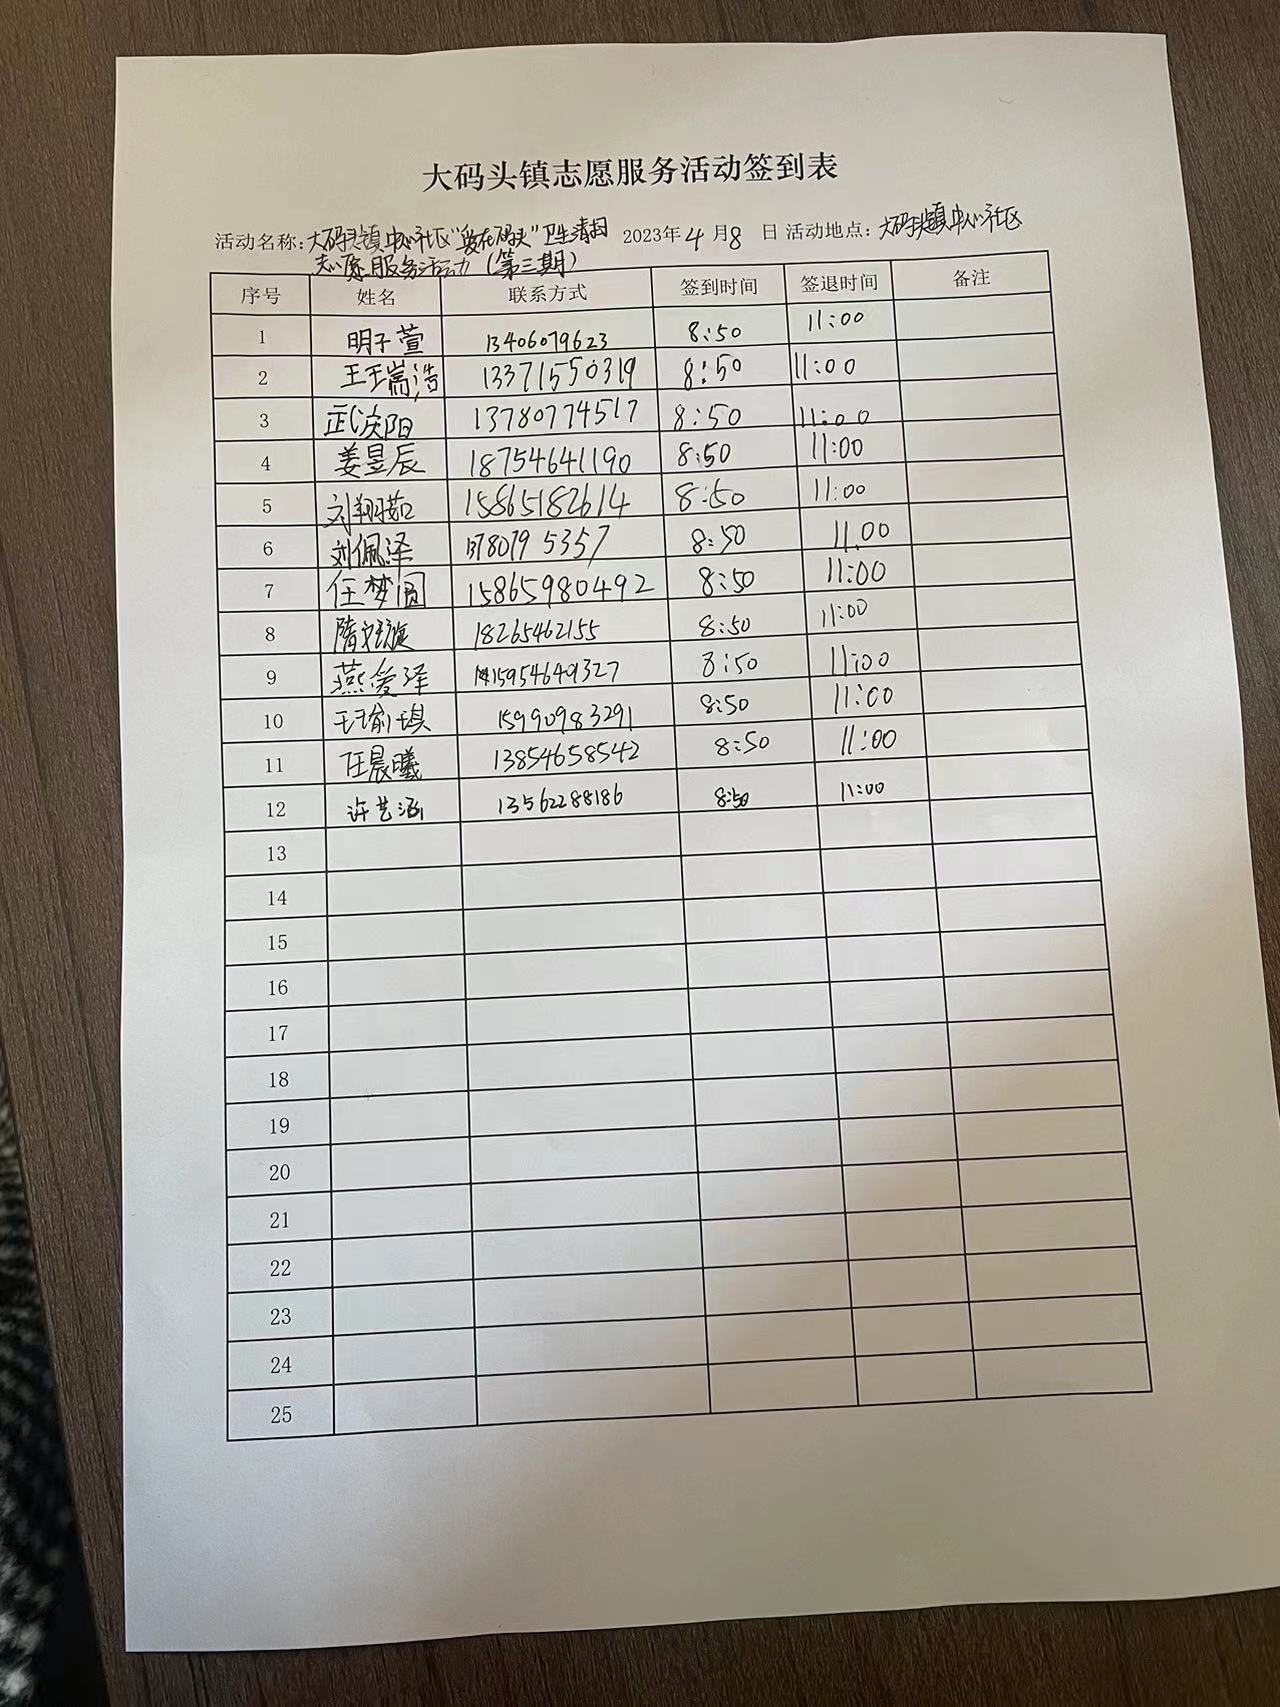 大码头镇志愿服务活动签到表
活动名称:大码头镇中心社区"爱在码头"卫生清扫 2023年4月8日 活动地点:大码头镇中心社区
志愿服务活动(第三期)
序号 姓名 联系方式 签到时间 签退时间 备注
1 明子萱 13406079623 8:50 11:00
2 王玉嵩浩 13371550319 8:50 11:00
3 武汶阳 13780774517 8:50 11:00
4 姜昱辰 18754641190 8:50 11:00
5 刘翔茹 15865182614 8:50 11:00
6 刘佩泽 1378079 5357 8:50 11:00
7 任梦圆 15865980492 8:50 11:00
8 18265462155 8:50 11:00
9 燕爱泽 15954649327 8:50 11:00
10 王瑜琪 15990983291 8:50 11:00
11 任晨曦 13854658542 8:50 11:00
12 许艺涵 13562288186 8:50 11:00
13
14
15
16
17
18
19
20
21
22
23
24
25